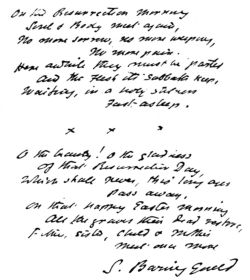 On the Resurrection Morning
Soul & Body meet again,
No more sorrow, no more weeping,
No more pain.
Here awhile they must be parted
And the flesh its Sabbath keep,
Waiting, in a holy stillness
Fast asleep.
x x x
O the beauty! O the gladness
Of that Resurrection Day,
Which shall never, thro' long ages
Pass away.
On that happy Easter morning
All the graves their dead restore,
Father, sister, child & mother
Meet once more
S. Baring Gould